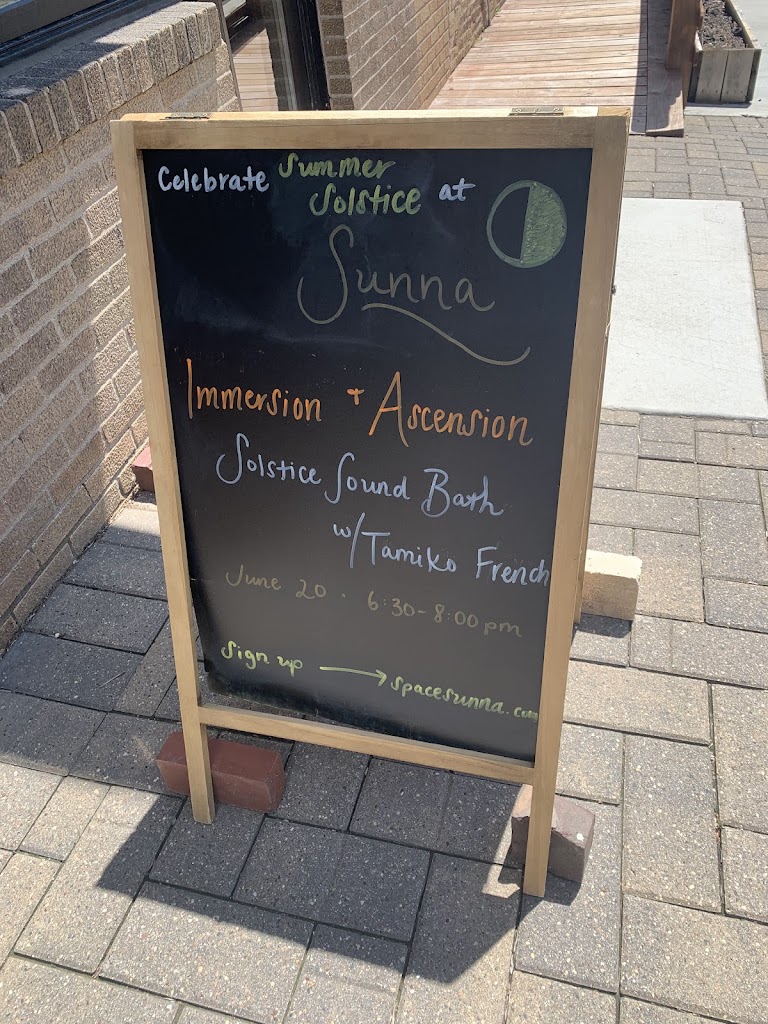 Celebrate Summer
Solstice at
Sunna
Immersion + Ascension
Solstice Sound Bath
w/ Tamiko French
June 20 · 6:30-8:00pm
Sign up → spacesunna.com